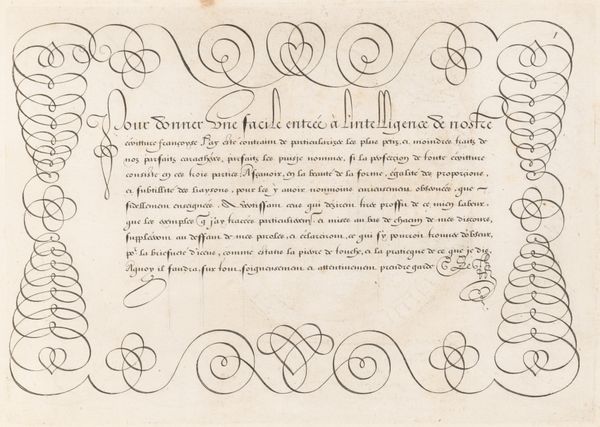 Pour donner une facile entrée à l'intelligence de nostre
escriture françoyse J'ay esté contraint de particularizer les plus petis, et moindres traits de
noz parfaits caracthères, parfaits les puisje nommer, si la perfection de toute escriture
consiste en ces trois parties. Asçavoir, en la beauté de la forme, égalité des proporcions,
et subtillité des liaysons, pour les y avoir nonmoins curieusement observées, que
fidellement enseignées. Advertissant ceux qui désirent tirer proffit de ce mien labeur,
que les exemples q j'ay tracées particulièremt. et mises au bas de chacun de mes discours,
suppléeront au deffaut de mes paroles, et éclarciront ce qui s'y pourroit trouver d'obscur,
pr. la briefveté d'iceux, comme estants la pierre de touche, et la praticque de ce que je dis,
Aquoy il faudra sur tout soigneusement et attentivement prendre garde